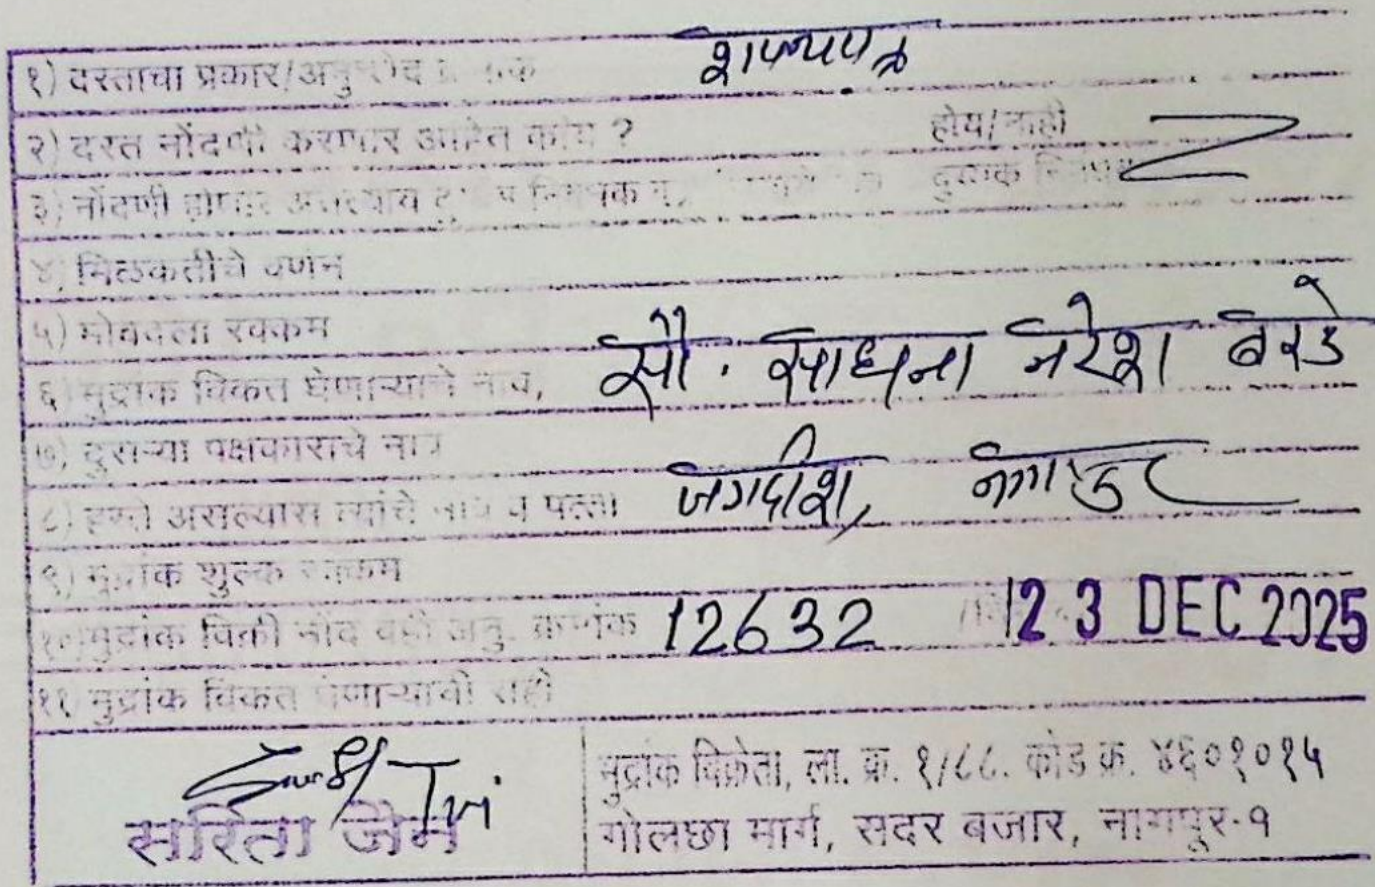 १) दस्ताचा प्रकार/अनुच्छेद क्रमांक शपथपत्र
२) दस्त नोंदणी करणार आहेत काय ? होय/नाही
३) नोंदणी होणार असल्यास दुय्यम निबंधक
४) मिळकतीचे वर्णन
५) मोबदला रक्कम
६) मुद्रांक विकत घेणाऱ्याचे नाव, सौ. साधना नरेश बरडे
७) दुसऱ्या पक्षकाराचे नाव
८) हस्ते असल्यास त्यांचे नाव व पत्ता जगदीश, नागपुर
९) मुद्रांक शुल्क रक्कम
१०) मुद्रांक विक्री नोंद वही अनु. क्रमांक 12632 23 DEC 2025
११) मुद्रांक विकत घेणाऱ्याची सही
सरिता जैन
मुद्रांक विक्रेता, ला. क्र. १/८८. कोड क्र. ४६०१०१५
गोलछा मार्ग, सदर बजार, नागपूर-१